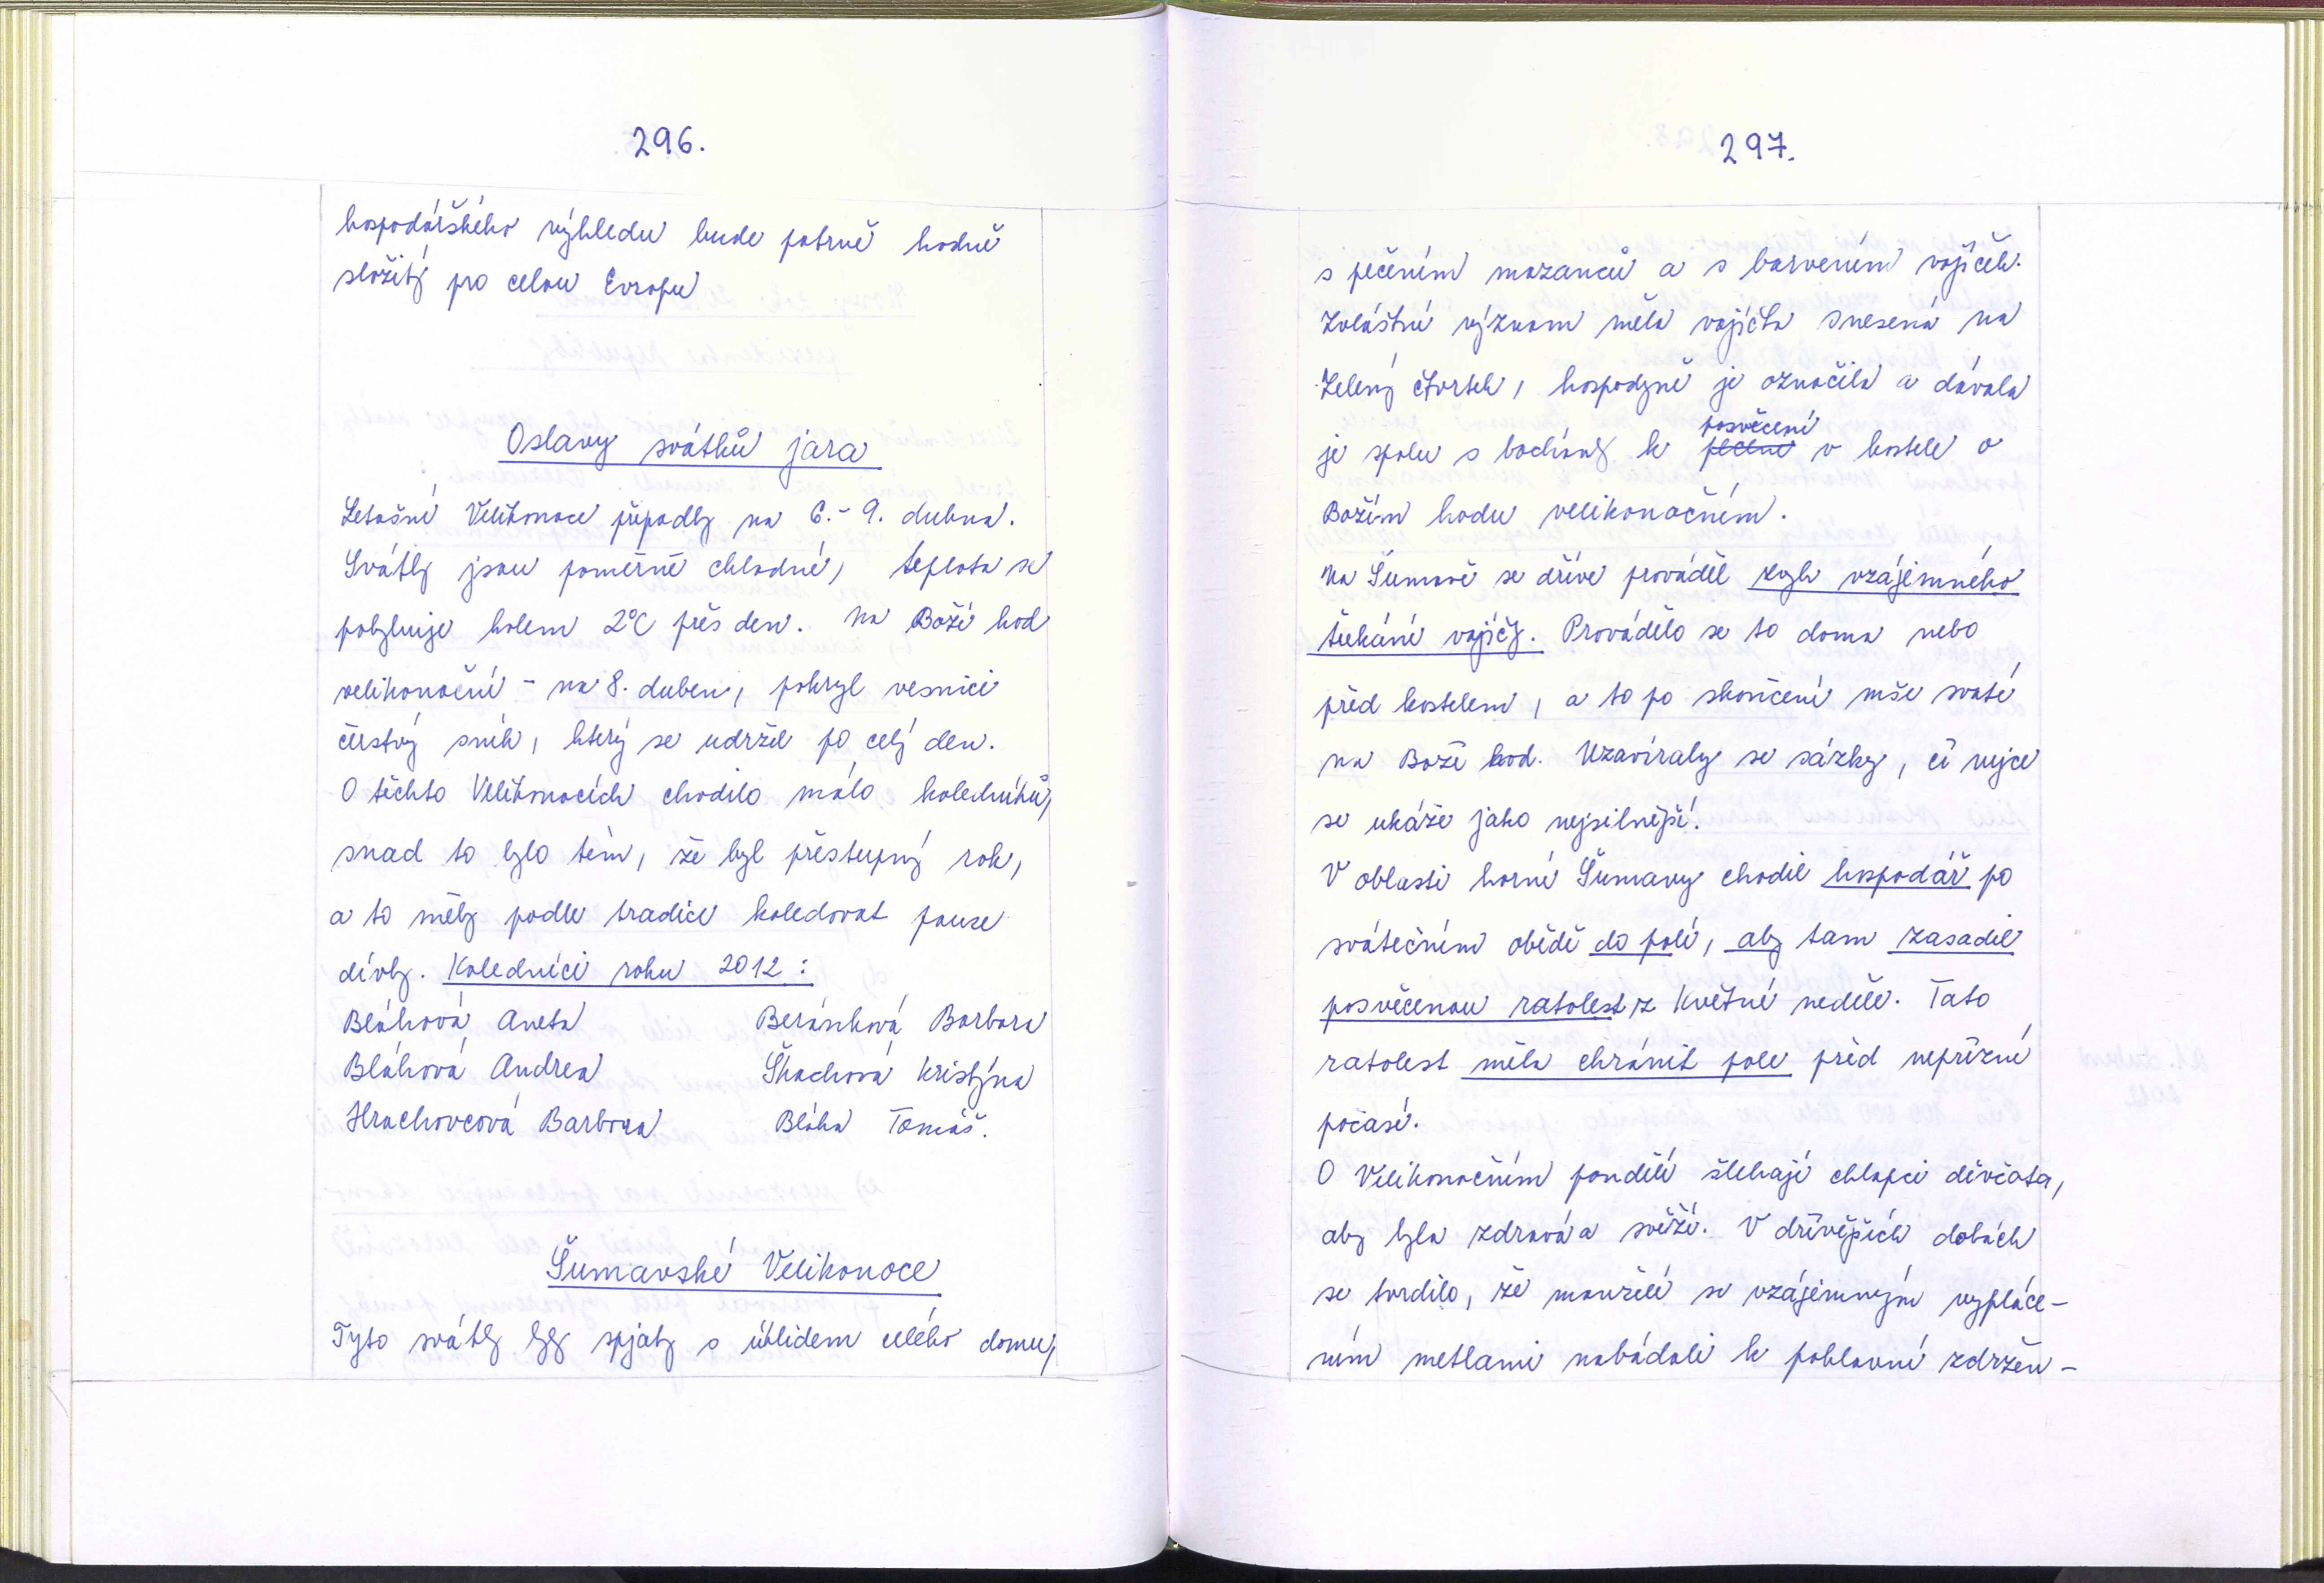 296.
hospodářského výhledu bude patrně hodně
složitý pro celou Evropu
Oslavy svátků jara
Letošní Velikonoce připadly na 6.- 9. dubna.
Svátky jsou poměrně chladné, teplota se
pohybuje kolem 2°C přes den. Na Boží hod
velikonoční - na 8. duben, pokryl vesnici
čerstvý sníh, který se udržel po celý den.
O těchto Velikonocích chodilo málo koledníků,
snad to bylo tím, že byl přestupný rok,
a to měly podle tradice koledovat pouze
dívky. Koledníci roku 2012 :
Bláhová Aneta Beránková Barbora
Bláhová Andrea Škachová Kristýna
Hrachovcová Barbora Bláha Tomáš.
Šumavské Velikonoce
Tyto svátky byly spjaty s úklidem celého domu,
297.
s pečením mazanců a s barvením vajíček.
Zvláštní význam měla vajíčka snesená na
Zelený čtvrtek, hospodyně je označila a dávala
posvěcení
je spolu s bochánky k pečení v kostele o
Božím hodu velikonočním.
Na Šumavě se dříve prováděl zvyk vzájemného
ťukání vajíčky. Provádělo se to doma nebo
před kostelem, a to po skončení mše svaté
na Boží hod. Uzavíraly se sázky, čí vejce
se ukáže jako nejsilnější.
V oblasti horní Šumavy chodil hospodář po
svátečním obědě do polí, aby tam zasadil
posvěcenou ratolest z Květné neděle. Tato
ratolest měla chránit pole před nepřízní
počasí.
O Velikonočním pondělí šlehají chlapci děvčata,
aby byla zdravá a svěží. V dřívějších dobách
se tvrdilo, že manželé se vzájemným vypláce-
ním metlami nabádali k pohlavní zdržen-